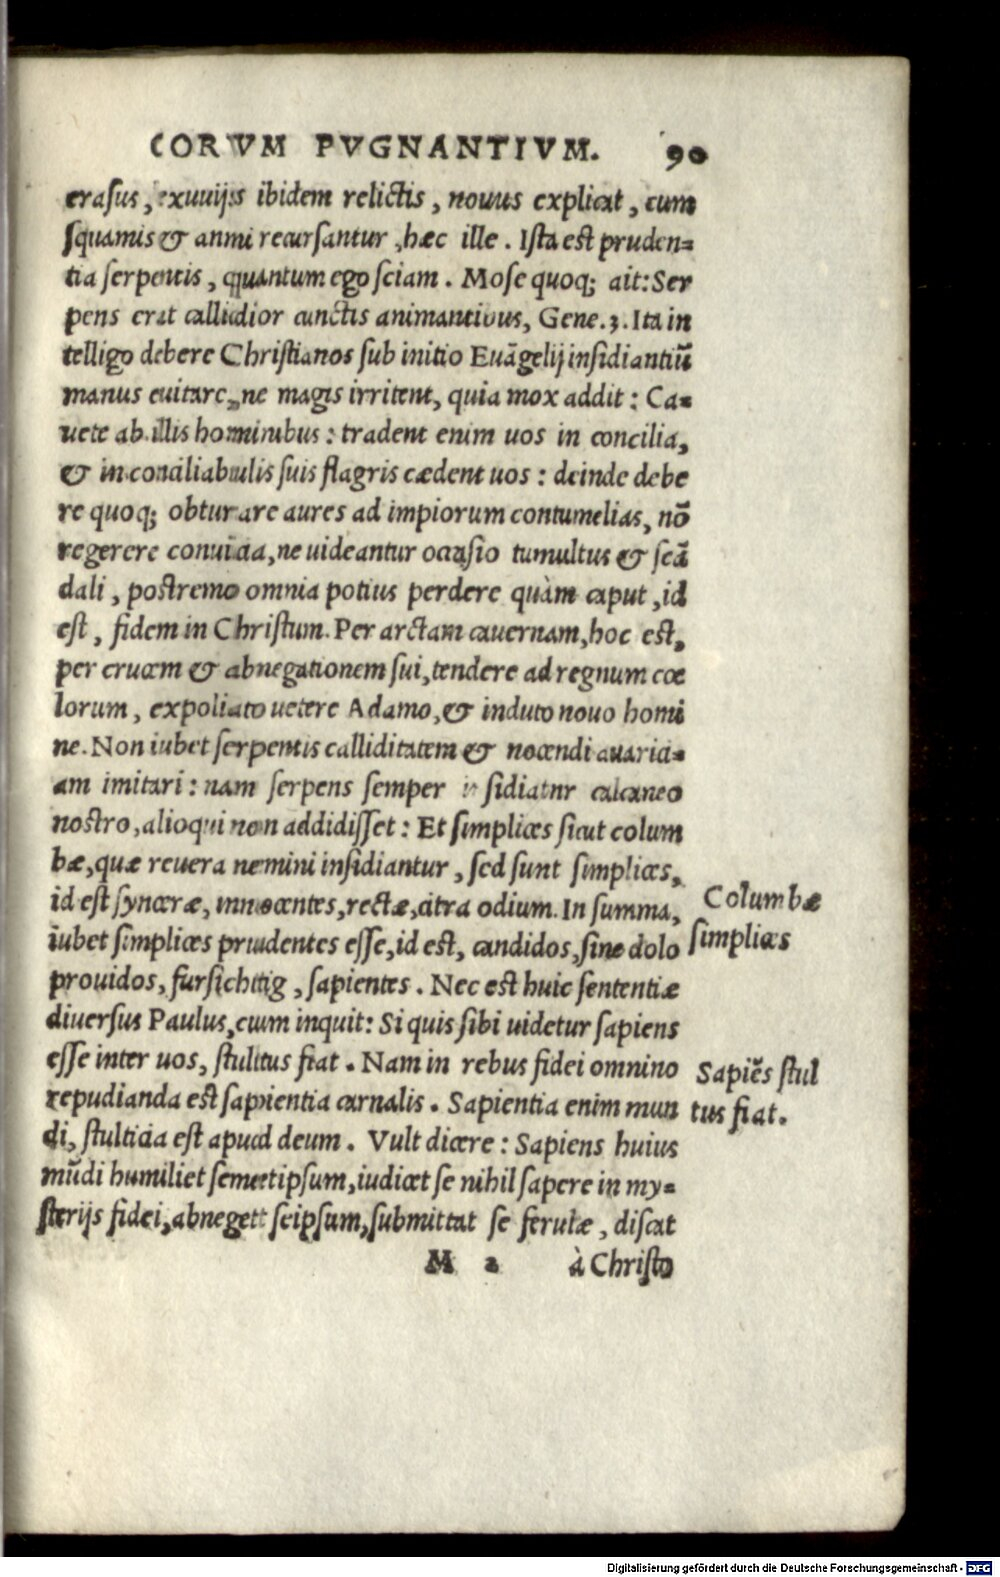 CORVM PVGNANTIVM. 90
erasus, exuuijs ibidem relictis, nouus explicat, cum
squamis & anni recursantur, hæc ille. Ista est pruden=
tia serpentis, quantum ego sciam. Mose quoq; ait: Ser
pens erat callidior cunctis animantibus, Gene.3. Ita in
telligo debere Christianos sub initio Euāgelij insidiantiū
manus euitare, ne magis irritent, quia mox addit: Ca=
uete ab illis hominibus: tradent enim uos in concilia,
& in conciliabulis suis flagris cædent uos: deinde debe
re quoq; obturare aures ad impiorum contumelias, nō
regerere conuicia, ne uideantur occasio tumultus & scā
dali, postremo omnia potius perdere quàm caput, id
est, fidem in Christum. Per arctam cauernam, hoc est,
per crucem & abnegationem sui, tendere ad regnum cœ
lorum, expoliato uetere Adamo, & induto nouo homi
ne. Non iubet serpentis calliditatem & nocendi auarici=
am imitari: nam serpens semper insidiatur calcaneo
nostro, alioqui non addidisset: Et simplices sicut colum
bæ, quæ reuera nemini insidiantur, sed sunt simplices,
id est synceræ, innocentes, rectæ, citra odium. In summa,
iubet simplices prudentes esse, id est, candidos, sine dolo
prouidos, fursichtig, sapientes. Nec est huic sententiæ
diuersus Paulus, cum inquit: Si quis sibi uidetur sapiens
esse inter uos, stultus fiat. Nam in rebus fidei omnino
repudianda est sapientia carnalis. Sapientia enim mun
di, stulticia est apud deum. Vult dicere: Sapiens huius
mūdi humiliet semetipsum, iudicet se nihil sapere in my=
sterijs fidei, abneget seipsum, submittat se ferulæ, discat
M 2 à Christo
Columbæ
simplices
Sapiēs stul
tus fiat.
Digitalisierung gefördert durch die Deutsche Forschungsgemeinschaft - DFG